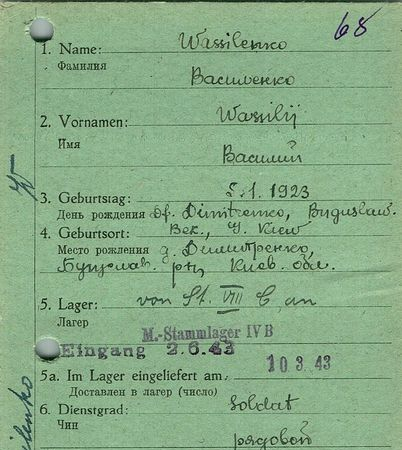 68
1. Name: Wassilenko
Фамилия
Василенко
2. Vornamen: Wassilij
Имя
Василий
3. Geburtstag: 5.1.1923
День рождения Df. Dimitrenko, Buguslaw.
4. Geburtsort: Bek, G. Kiew
Место рождения д. Димитренко,
Бугуслав. рн, Киев. обл.
5. Lager: von St. VIII C, an
Лагер
M.-Stammlager IV B
Eingang 2.6.43
10 3. 43
5a. Im Lager eingeliefert am
Доставлен в лагер (число)
6. Dienstgrad: Soldat
Чин
рядовой